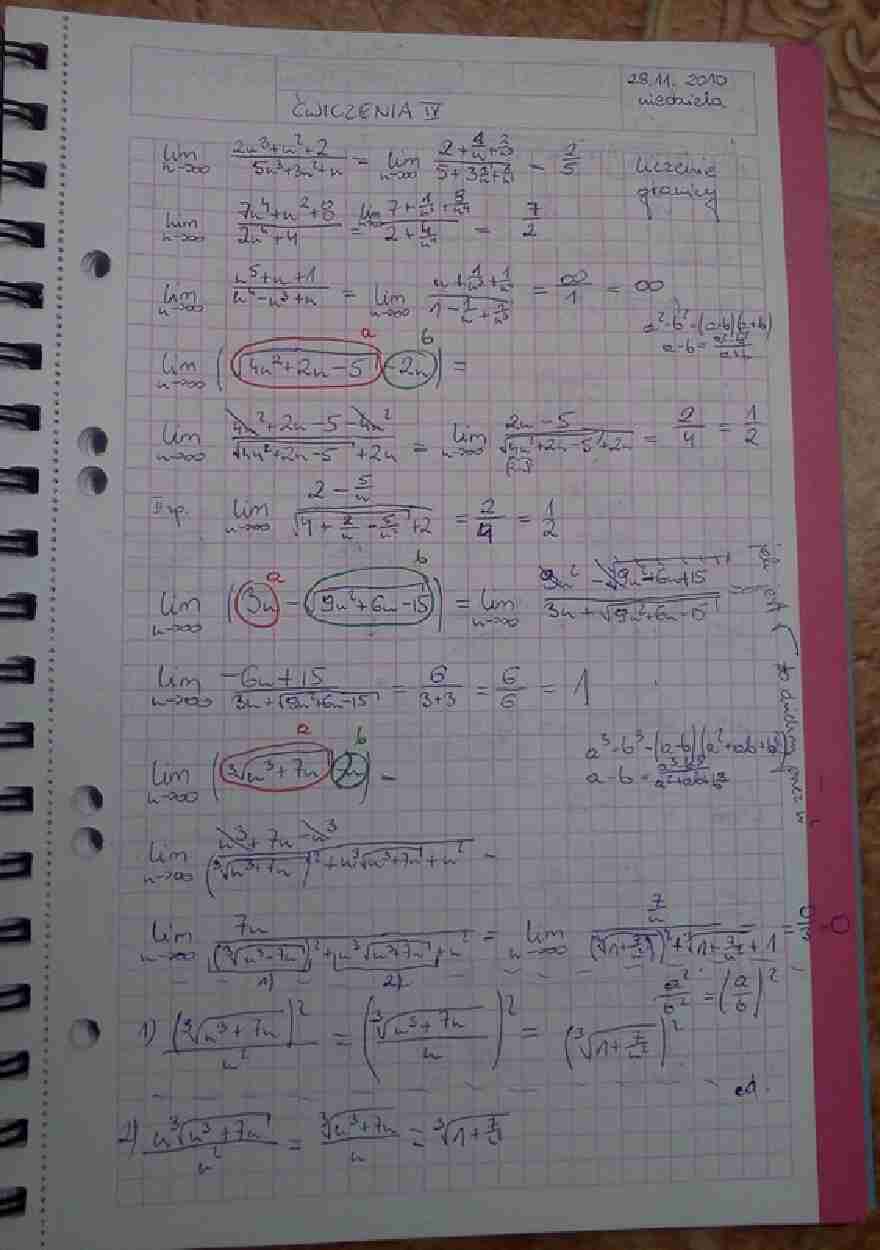 28.11. 2010
niedziela
ĆWICZENIA IV
lim n→∞ (2n³+n²+2)/(5n³+3n²+n) = lim n→∞ = 2/5
Liczenie granicy
lim n→∞ (7n⁴+n²+8)/(2n⁴+4) = lim n→∞ (7+1/n²+8/n⁴)/(2+4/n⁴) = 7/2
lim n→∞ (n⁵+n+1)/(n⁴-n³+n) = lim n→∞ (n+1/n³+1/n⁴)/(1-1/n+1/n³) = ∞/1 = ∞
a²-b²=(a-b)(a+b)
a-b = (a²-b²)/(a+b)
a b
lim n→∞ (√(4n²+2n-5) - 2n) =
lim n→∞ (4n²+2n-5-4n²)/(√(4n²+2n-5)+2n) = lim n→∞ (2n-5)/(√(4n²+2n-5)+2n) = 2/4 = 1/2
II sp. lim n→∞ (2-5/n)/(√(4+2/n-5/n²)+2) = 2/4 = 1/2
a b
lim n→∞ (3n - √(9n²+6n-15)) = lim n→∞ /(3n+√(9n²+6n-15)) =
lim n→∞ (-6n+15)/(3n+√(9n²+6n-15)) = 6/(3+3) = 6/6 = 1
a b
a³-b³=(a-b)(a²+ab+b²)
a-b = (a³-b³)/(a²+ab+b²)
lim n→∞ (³√(n³+7n) - n) =
lim n→∞ (n³+7n-n³)/((³√(n³+7n))²+n³√(n³+7n)+n²) =
lim n→∞ 7n/((³√(n³-7n))²+n³√(n³+7n)+n²) = lim n→∞ (7/n)/((³√(1+7/n²))²+³√(1+7/n²)+1) = 0/3 = 0
1) 2)
a²/b² = (a/b)²
1) (³√(n³+7n))²/n² = (³√(n³+7n)/n)² = (³√(1+7/n²))²
cd.
2) n³√(n³+7n)/n² = ³√(n³+7n)/n = ³√(1+7/n²)